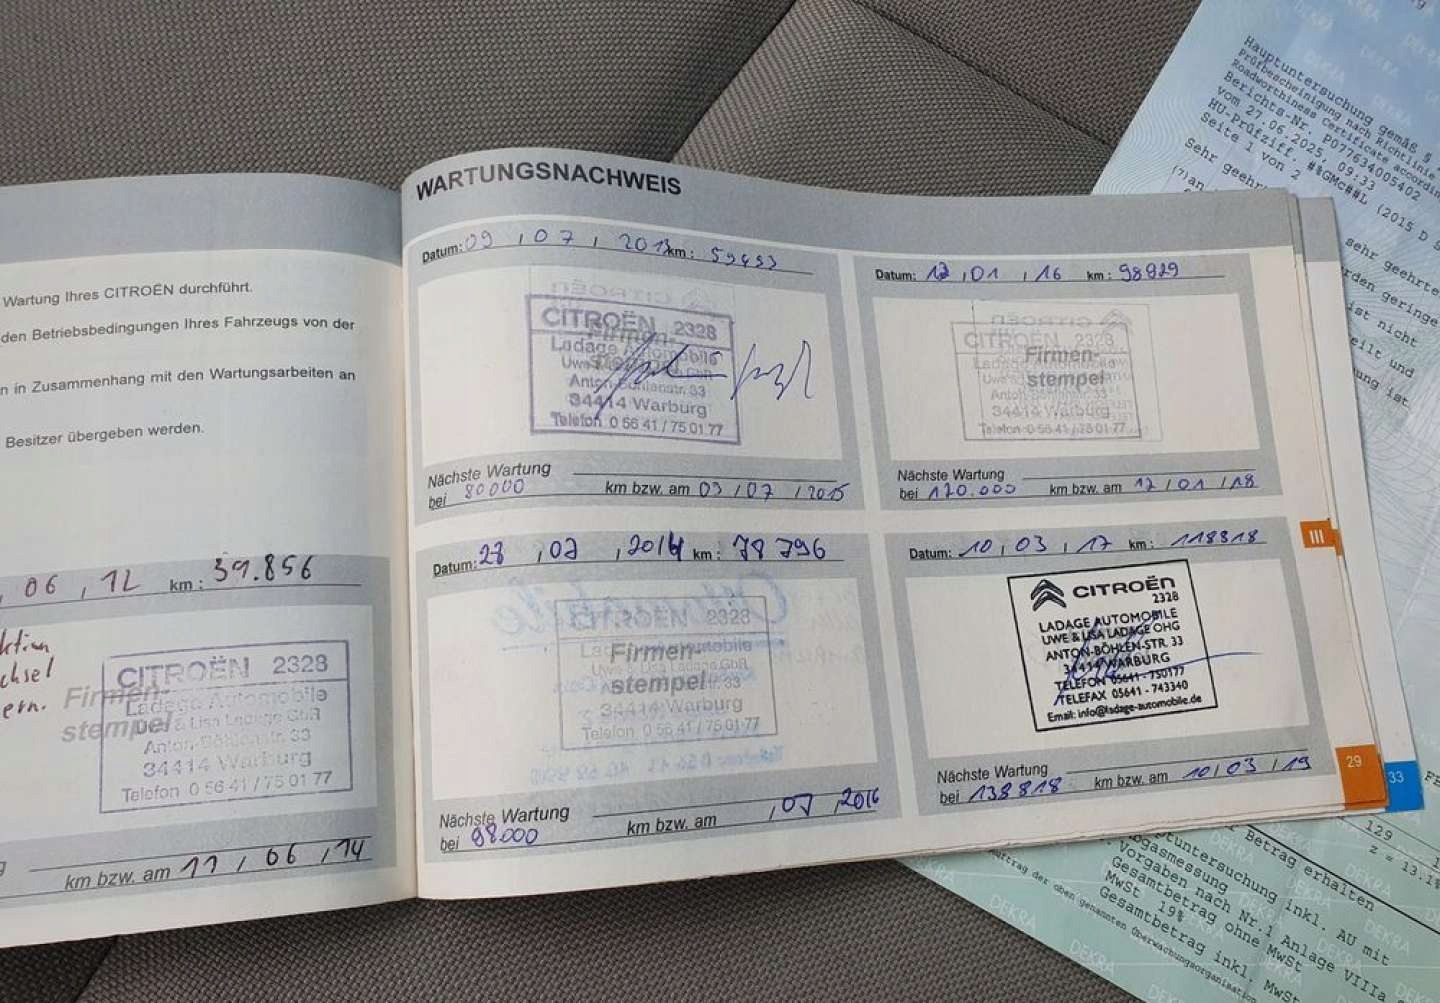 Wartung Ihres CITROËN durchführt.
den Betriebsbedingungen Ihres Fahrzeugs von der
n in Zusammenhang mit den Wartungsarbeiten an
Besitzer übergeben werden.
06 , 12 km : 39.856
Firmen-
stempel
CITROËN 2328
Ladage Automobile
Uwe & Lisa Ladage GbR
Anton-Böhlen-Str. 33
34414 Warburg
Telefon 0 56 41 / 75 01 77
km bzw. am 11 / 06 / 14
WARTUNGSNACHWEIS
Datum: 09 , 07 , 2013 km : 59493
Firmen-
CITROËN 2328
Ladage Automobile
Anton-Böhlenstr. 33
34414 Warburg
Telefon 0 56 41 / 75 01 77
Nächste Wartung
bei 80000 km bzw. am 09 / 07 / 2015
Datum: 28 , 07 , 2014 km : 78 796
CITROËN 2328
Firmen-
stempel
Uwe & Lisa Ladage GbR
34414 Warburg
Telefon 0 56 41 / 75 01 77
Nächste Wartung
bei 98000 km bzw. am , 07 , 2016
Datum: 12 , 01 , 16 km : 98929
CITROËN 2328
Firmen-
stempel
34414 Warburg
Telefon 0 56 41 / 75 01 77
Nächste Wartung
bei 120.000 km bzw. am 12 / 01 / 18
Datum: 10 , 03 , 17 km : 118818
CITROËN
2328
LADAGE AUTOMOBILE
UWE & LISA LADAGE OHG
ANTON-BÖHLEN-STR. 33
34414 WARBURG
TELEFON 05641 - 750177
TELEFAX 05641 - 743340
Email: info@ladage-automobile.de
Nächste Wartung
bei 138818 km bzw. am 10 / 03 / 19
III
29
33
Hauptuntersuchung gemäß §
Prüfbescheinigung nach Richtlinie
Roadworthiness Certificate according
Berichts-Nr. P077634005402
vom 27.06.2025, 09:33
HU-Prüfziff. #%GMc##L (2015 D S
Seite 1 von 2
Sehr geehrt
(7)an
sehr geehrte
rden geringe
ist nicht
eilt und
ung ist
FE
129
z = 13.1%
Betrag erhalten
ptuntersuchung inkl. AU mit
bgasmessung
Vorgaben nach Nr.1 Anlage VIIIa
Gesamtbetrag ohne MwSt
MwSt 19%
Gesamtbetrag inkl. MwSt
uftrag der oben genannten Überwachungsorganisation
DEKRA